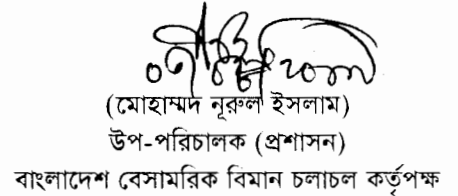 (মোহাম্মদ নূরুল ইসলাম)
উপ-পরিচালক (প্রশাসন)
বাংলাদেশ বেসামরিক বিমান চলাচল কর্তৃপক্ষ